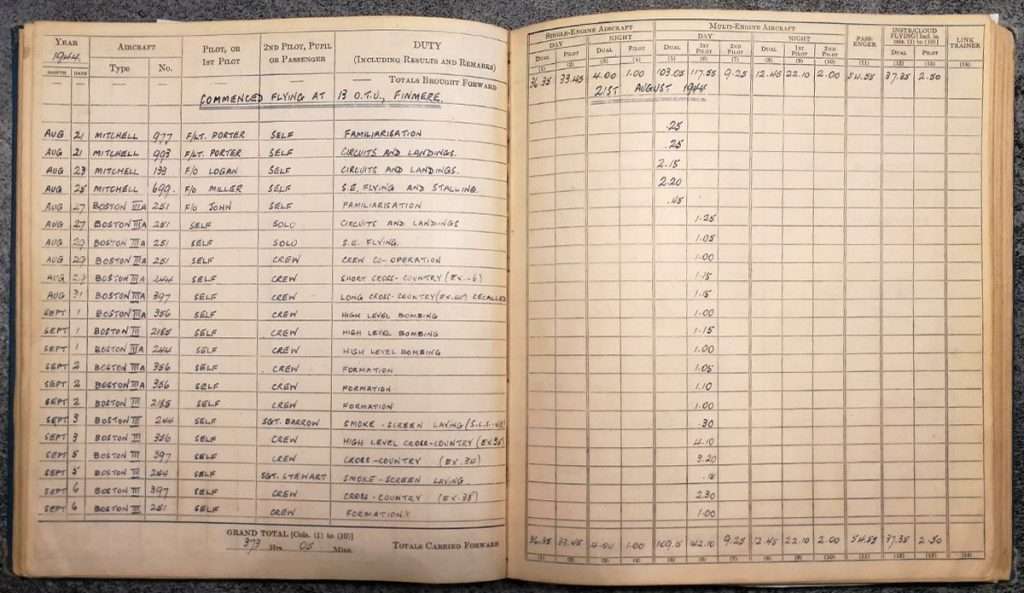 YEAR AIRCRAFT PILOT, OR 1ST PILOT 2ND PILOT, PUPIL OR PASSENGER DUTY (INCLUDING RESULTS AND REMARKS) SINGLE-ENGINE AIRCRAFT MULTI-ENGINE AIRCRAFT PASSENGER INSTR/CLOUD FLYING [Incl. in cols. (1) to (10)] LINK TRAINER
1944 DAY NIGHT DAY NIGHT
MONTH DATE Type No. DUAL PILOT DUAL PILOT DUAL 1ST PILOT 2ND PILOT DUAL 1ST PILOT 2ND PILOT DUAL PILOT
(1) (2) (3) (4) (5) (6) (7) (8) (9) (10) (11) (12) (13) (14)
— — — — — — — TOTALS BROUGHT FORWARD 36.35 33.45 4.00 1.00 103.05 117.55 9.25 12.45 22.10 2.00 54.55 37.35 2.50
COMMENCED FLYING AT 13 O.T.U., FINMERE. 21ST AUGUST 1944
AUG 21 MITCHELL 977 F/LT. PORTER SELF FAMILIARISATION .25
AUG 21 MITCHELL 993 F/LT. PORTER SELF CIRCUITS AND LANDINGS. .25
AUG 23 MITCHELL 133 F/O LOGAN SELF CIRCUITS AND LANDINGS. 2.15
AUG 25 MITCHELL 699. F/O MILLER SELF S.E. FLYING AND STALLING. 2.20
AUG 27 BOSTON IIIA 251 F/O JOHN SELF FAMILIARISATION .45
AUG 27 BOSTON IIIA 251 SELF SOLO CIRCUITS AND LANDINGS 1.25
AUG 29 BOSTON IIIA 251 SELF SOLO S.E. FLYING. 1.05
AUG 29 BOSTON IIIA 251 SELF CREW CREW CO-OPERATION 1.00
AUG 29 BOSTON IIIA 244 SELF CREW SHORT CROSS-COUNTRY (EX.-6) 1.15
AUG 31 BOSTON IIIA 397 SELF CREW LONG CROSS-COUNTRY RECALLED 1.15
SEPT 1 BOSTON IIIA 356 SELF CREW HIGH LEVEL BOMBING 1.00
SEPT 1 BOSTON III 2185 SELF CREW HIGH LEVEL BOMBING 1.15
SEPT 1 BOSTON IIIA 244 SELF CREW HIGH LEVEL BOMBING 1.00
SEPT 2 BOSTON IIIA 356 SELF CREW FORMATION 1.05
SEPT 2 BOSTON IIIA 356 SELF CREW FORMATION 1.10
SEPT 2 BOSTON III 2185 SELF CREW FORMATION 1.00
SEPT 3 BOSTON III 244 SELF SGT. BARROW SMOKE-SCREEN LAYING .30
SEPT 3 BOSTON III 356 SELF CREW HIGH LEVEL CROSS-COUNTRY 4.10
SEPT 5 BOSTON III 397 SELF CREW CROSS-COUNTRY (EX.34) 3.20
SEPT 5 BOSTON III 244 SELF SGT. STEWART SMOKE-SCREEN LAYING
SEPT 6 BOSTON III 397 SELF CREW CROSS-COUNTRY (EX.35) 2.30
SEPT 6 BOSTON III 251 SELF CREW FORMATION 1.00
GRAND TOTAL [Cols. (1) to (10)]
373 Hrs. 05 Mins. TOTALS CARRIED FORWARD 36.35 33.45 4.00 1.00 109.15 42.10 9.25 12.45 22.10 2.00 54.55 37.35 2.50
(1) (2) (3) (4) (5) (6) (7) (8) (9) (10) (11) (12) (13) (14)